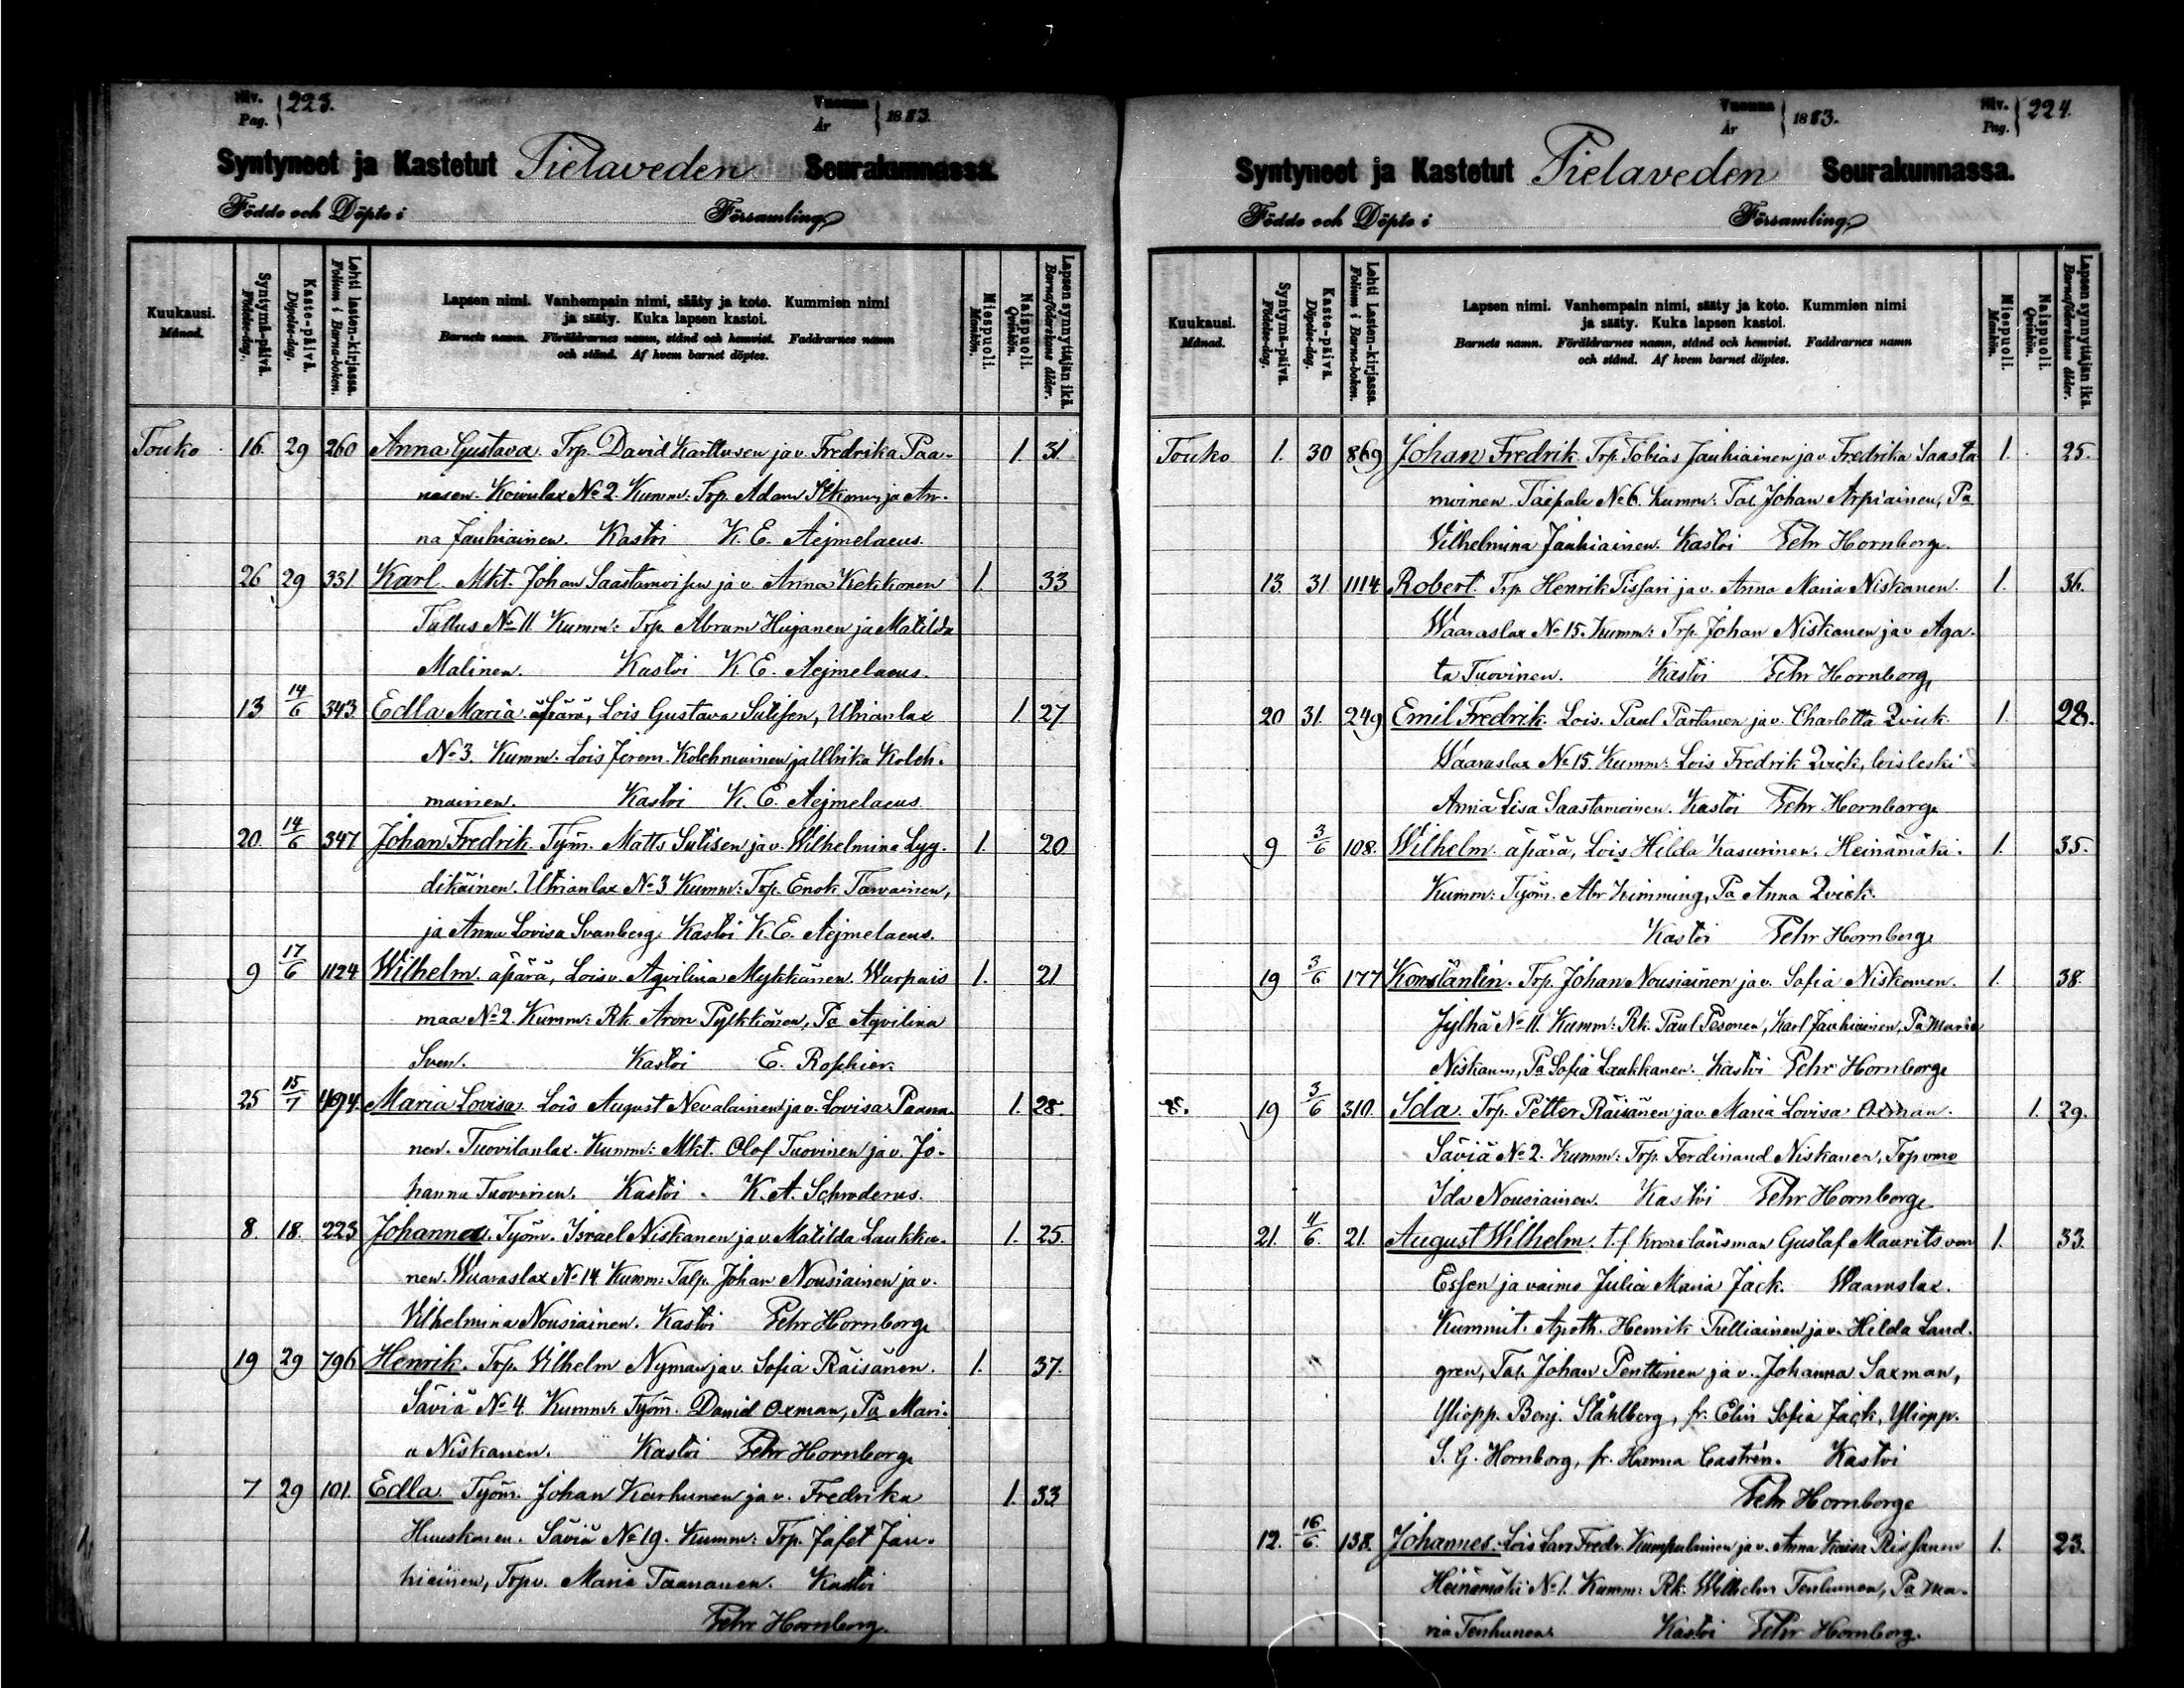 Siv. Pag. 223.
Vuonna År 1883.
Syntyneet ja Kastetut Pielaveden Seurakunnassa.
Födde och Döpte i Församling.
Kuukausi. Månad.
Syntymä-päivä. Födelse-dag.
Kaste-päivä. Döpelse-dag.
Lehti lasten-kirjassa. Folium i Barna-boken.
Lapsen nimi. Vanhempain nimi, sääty ja koto. Kummien nimi
ja sääty. Kuka lapsen kastoi.
Barnets namn. Föräldrarnes namn, stånd och hemvist. Faddrarnes namn
och stånd. Af hvem barnet döptes.
Miespuoli. Mankön.
Naispuoli. Qvinkön.
Lapsen synnyttäjän ikä. Barnaföderskans ålder.
Touko 16. 29 260 Anna Gustava. Trp. David Karttunen ja v. Fredrika Paa- 1. 31.
nanen. Koivulax No 2. Kumm: Trp. Adam Sitkonen ja An-
na Jauhiainen. Kastoi K. E. Aejmelaeus.
26 29 331 Karl. Mkt. Johan Saastamoisen ja v. Anna Kekkonen 1. 33
No 11 Kumm: Trp. Abram Hujanen ja Matilda
Malinen. Kastoi K. E. Aejmelaeus.
13 14/6 343 Edla Maria. äpärä, Lois Gustava Sutisen, Utrianlax 1. 27
No 3. Kumm: Lois Jerem. Kolehmainen ja Ulrika Koleh-
mainen. Kastoi K. E. Aejmelaeus.
20. 14/6 347 Johan Fredrik. Työm. Matts Sutisen ja v. Wilhelmina Lyy- 1. 20
dikäinen. Utrianlax No 3 Kumm: Trp. Enok Tarvainen,
ja Anna Lovisa Svanberg. Kastoi K. E. Aejmelaeus.
9 17/6 1124 Wilhelm. äpärä, Lois v. Aqvilina Mykkänen. Warpais 1. 21
maa No 2. Kumm: Rk. Aron Pylkkönen, Pa Aqvilina
Sven. Kastoi E. Rophier.
25 15/7 494. Maria Lovisa. Lois August Nevalainen ja v. Lovisa Paana- 1. 28.
nen. Tuovilanlax. Kumm: Mkt. Olof Tuovinen ja v. Jo-
hanna Tuovinen. Kastoi K. A. Schroderus.
8. 18. 223 Johanna. Työm. Israel Niskanen ja v. Matilda Laukka- 1. 25.
nen. Waaraslax No 14 Kumm: Talp. Johan Nousiainen ja v.
Vilhelmina Nousiainen. Kastoi Pehr Hornborg
19 29 796 Henrik. Trp. Vilhelm Nyman ja v. Sofia Räisänen. 1. 37.
Säviä No 4. Kumm: Työm. David Oxman, Pa Mari-
a Niskanen. Kastoi Pehr Hornborg
7 29 101. Edla Työm. Johan Karhunen ja v. Fredrika 1. 33
Huuskonen. Säviä No 19. Kumm: Trp. Jafet Jau-
hiainen, Trpv. Maria Taananen. Kastoi
Pehr Hornborg.
Vuonna År 1883.
Siv. Pag. 224.
Syntyneet ja Kastetut Pielaveden Seurakunnassa.
Födde och Döpte i Församling.
Kuukausi. Månad.
Syntymä-päivä. Födelse-dag.
Kaste-päivä. Döpelse-dag.
Lehti Lasten-kirjassa. Folium i Barna-boken.
Lapsen nimi. Vanhempain nimi, sääty ja koto. Kummien nimi
ja sääty. Kuka lapsen kastoi.
Barnets namn. Föräldrarnes namn, stånd och hemvist. Faddrarnes namn
och stånd. Af hvem barnet döptes.
Miespuoli. Mankön.
Naispuoli. Qvinkön.
Lapsen synnyttäjän ikä. Barnaföderskans ålder.
Touko 1. 30 869 Johan Fredrik. Trp. Tobias Jauhiainen ja v. Fredrika Saasta 1. 25.
moinen. Taipale No 6. Kumm: Tal. Johan Arpiainen, Pa
Vilhelmina Jauhiainen. Kastoi Pehr Hornborg.
13. 31 1114 Robert. Trp. Henrik Tissari ja v. Anna Maria Niskanen. 1. 36.
Waaraslax No 15. Kumm: Trp. Johan Niskanen ja v Aga-
ta Tuovinen. Kastoi Pehr Hornborg,
20 31. 249 Emil Fredrik. Lois. Paul Partanen ja v. Charlotta Qvick. 1. 28.
Waaraslax No 15. Kumm: Lois Fredrik Qvick, loisleski
Anna Lisa Saastamoinen. Kastoi Pehr Hornborg
9 3/6 108. Wilhelm. äpärä, Lois Hilda Kasurinen. Heinämäki. 1. 35.
Kumm: Työm. Abr Kimming, Pa Anna Qvick.
Kastoi Pehr Hornborg
19 3/6 177 Konstantin. Trp. Johan Nousiainen ja v. Sofia Niskonen. 1. 38.
Jylhä No 11. Kumm: Rk. Paul Pesonen, Karl Jauhiainen, Pa Maria
Niskanen, Pa Sofia Laukkanen. Kastoi Pehr Hornborg
19 3/6 310. Ida. Trp. Petter Räisänen ja v. Maria Lovisa Oxman. 1. 29.
Säviä No 2. Kumm: Trp. Ferdinand Niskanen, Trp vmo
Ida Nousiainen. Kastoi Pehr Hornborg
21. 4/6. 21. August Wilhelm. t. f. kronolänsman Gustaf Maurits von 1. 33.
Essen ja vaimo Julia Maria Jack. Waaraslax.
Kummit. Apoth. Henrik Pulliainen ja v. Hilda Land-
gren, Tal. Johan Penttinen ja v. Johanna Saxman,
Yliopp. Benj. Ståhlberg, fr. Elin Sofia Jack, Yliopp.
S. G. Hornborg, fr. Castrén. Kastoi
Pehr Hornborg
12. 16/6. 138. Johannes. Lois Lars Fredr. Kumpulainen ja v. Anna Kaisa Rissanen 1. 23.
Heinämäki No 1. Kumm: Rk. Wilhelm Tenhunen, Pa Ma-
ria Tenhunen. Kastoi Pehr Hornborg.